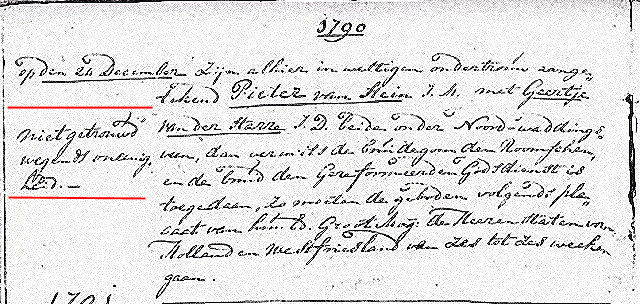 1790
op den 24 December Zijn alhier in wettigen ondertrouw aange„
tekend Pieter van Rein J. M. met Geertje
van der Starre J. D. beide onder Noord-waddings„
veen, dan vermits de Bruidegom den Roomschen,
niet getrouwd
en de bruid den Gereformeerden Godsdienst is
wegends onëenig„
toegedaan, zo moeten de geboden volgends pla„
heid. —
caat van hun Ed. Groot Mog: de Heeren Staten van
Holland en Westfriesland van zes tot zes weeken
gaan.
1791